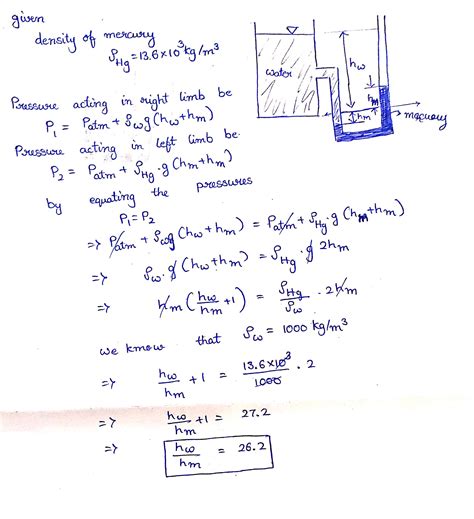 given
density of mercury
ρHg = 13.6×10³ kg/m³
water
hw
hm
hm
mercury
Pressure acting in right limb be
P₁ = Patm + ρwg(hw+hm)
Pressure acting in left limb be.
P₂ = Patm + ρHg·g(hm+hm)
by equating the pressures
P₁ = P₂
=> Patm + ρwg(hw+hm) = Patm + ρHg·g(hm+hm)
=> ρw·g(hw+hm) = ρHg·g 2hm
=> hm(hw/hm +1) = ρHg/ρw · 2hm
we know that ρw = 1000 kg/m³
=> hw/hm + 1 = 13.6×10³/1000 · 2
=> hw/hm +1 = 27.2
=> hw/hm = 26.2